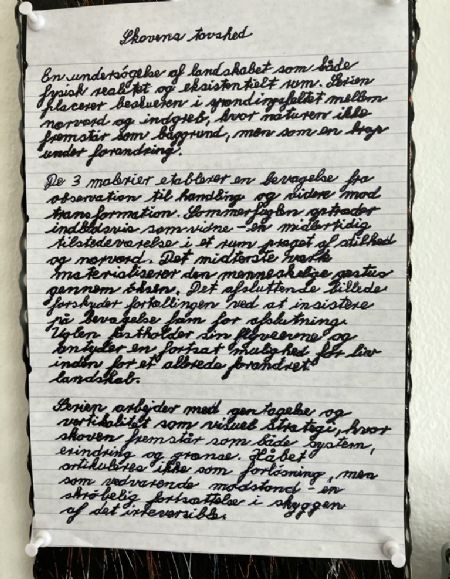 Skovens tavshed
En undersøgelse af landskabet som både
fysisk realitet og eksistentielt rum. Serien
placerer beskueren i spændingsfeltet mellem
nærvær og indgreb, hvor naturen ikke
fremstår som baggrund, men som en krop
under forandring.
De 3 malerier etablerer en bevægelse fra
observation til handling og videre mod
transformation. Sommerfuglen optræder
indledsvis som vidne - en midlertidig
tilstedeværelse i et rum præget af stilhed
og nærvær. Det midterste værk
materialiserer den menneskelige gestus
gennem øksen. Det afsluttende billede
forskyder fortællingen ved at insistere
på bevægelse fam for afslutning.
Uglen fastholder sin flyveevne og
antyder en fortsat mulighed for liv
inden for et allerede forandret
landskab.
Serien arbejder med gentagelse og
vertikalitet som visuel strategi, hvor
skoven fremstår som både system,
erindring og grænse. Håbet
artikuleres ikke som forløsning, men
som vedvarende modstand - en
skrøbelig fortsættelse i skyggen
af det irreversible.